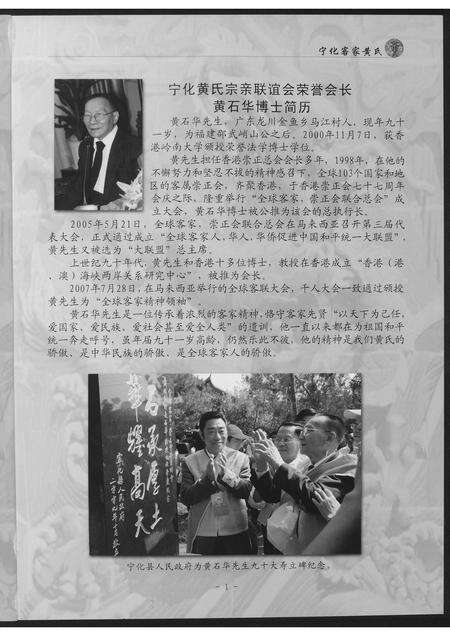 宁化客家黄氏
宁化黄氏宗亲联谊会荣誉会长
黄石华博士简历
黄石华先生，广东龙川金鱼乡马江村人，现年九十
一岁，为福建邵武峭山公之后。2000年11月7日，获香
港岭南大学颁授荣誉法学博士学位。
黄先生担任香港崇正总会会长多年，1998年，在他的
不懈努力和坚忍不拔的精神感召下，全球103个国家和地
区的客属崇正会，齐聚香港，于香港崇正会七十七周年
会庆之际，隆重举行“全球客家，崇正会联合总会”成
立大会，黄石华博士被公推为该会的总执行长。
2005年5月21日，全球客家，崇正会联合总会在马来西亚召开第三届代
表大会，正式通过成立“全球客家人，华人，华侨促进中国和平统一大联盟”，
黄先生又被选为“大联盟”总主席。
上世纪九十年代，黄先生和香港十多位博士，教授在香港成立“香港（港
、澳）海峡两岸关系研究中心”，被推为会长。
2007年7月28日，在马来西亚举行的全球客联大会，千人大会一致通过颁授
黄先生为“全球客家精神领袖”。
黄石华先生是一位传承着浓烈的客家精神，恪守客家先贤“以天下为己任，
爱国家，爱民族，爱社会甚至爱全人类”的遗训，他一直以来都在为祖国和平
统一奔走呼号，虽年届九十一岁高龄，仍然乐此不彼。他的精神是我们黄氏的
骄傲，是中华民族的骄傲，是全球客家人的骄傲。
石承厚土
华耀高天
宁化县人民政府
宁化县人民政府为黄石华先生九十大寿立碑纪念。
- 1 -